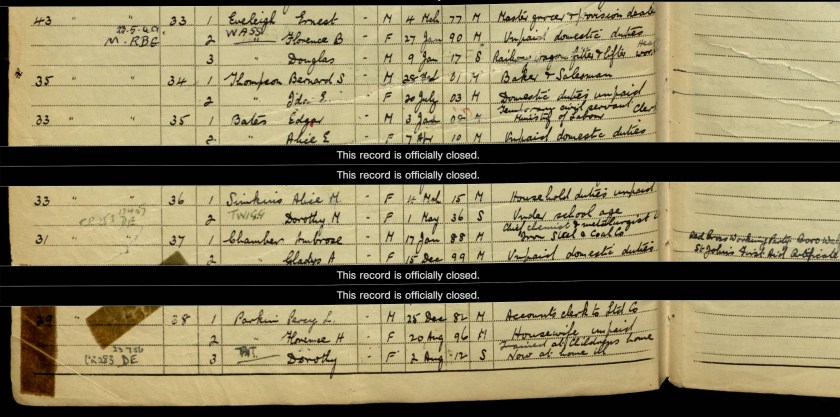 43 " " 33 1 Eveleigh Ernest - M 4 Mch 77 M Master grocer & provision deale
22.5.40 M-RBE WASS 2 " Florence B - F 27 Jan 90 M Unpaid domestic duties
3 " Douglas - M 9 Jan 17 S Railway wagon fitter & lifter Heavy work
35 " " 34 1 Thompson Bernard S - M 28 Feb 01 M Baker & Salesman
2 " Ida E. - F 20 July 03 M Domestic duties unpaid
33 " " 35 1 Bates Edgar - M 3 Jan M Temporary civil servant Cler Ministry of Labour
2 Alice E - F 7 Apr 10 M Unpaid domestic duties
This record is officially closed.
This record is officially closed.
33 " " 36 1 Simkins Alice M - F 14 Mch 15 M Household duties unpaid
DE TWIGG 2 Dorothy M - F 1 May 36 S Under school age
31 " 37 1 Chamber Ambrose - M 17 Jan 88 M Chief chemist & metallurgist Iron Steel & Coal Co Red Cross Working Party
2 " Gladys A - F 15 Dec 99 M Unpaid domestic duties St Johns First Aid Certificate
This record is officially closed.
This record is officially closed.
29 " 38 1 Parkin Percy L. - M 25 Dec 82 M Accounts clerk to Ltd Co
2 " Florence H - F 20 Aug 96 M Housewife unpaid
DE 3 " Dorothy - F 2 Aug 12 S Trained at Childrens home Now at home ill